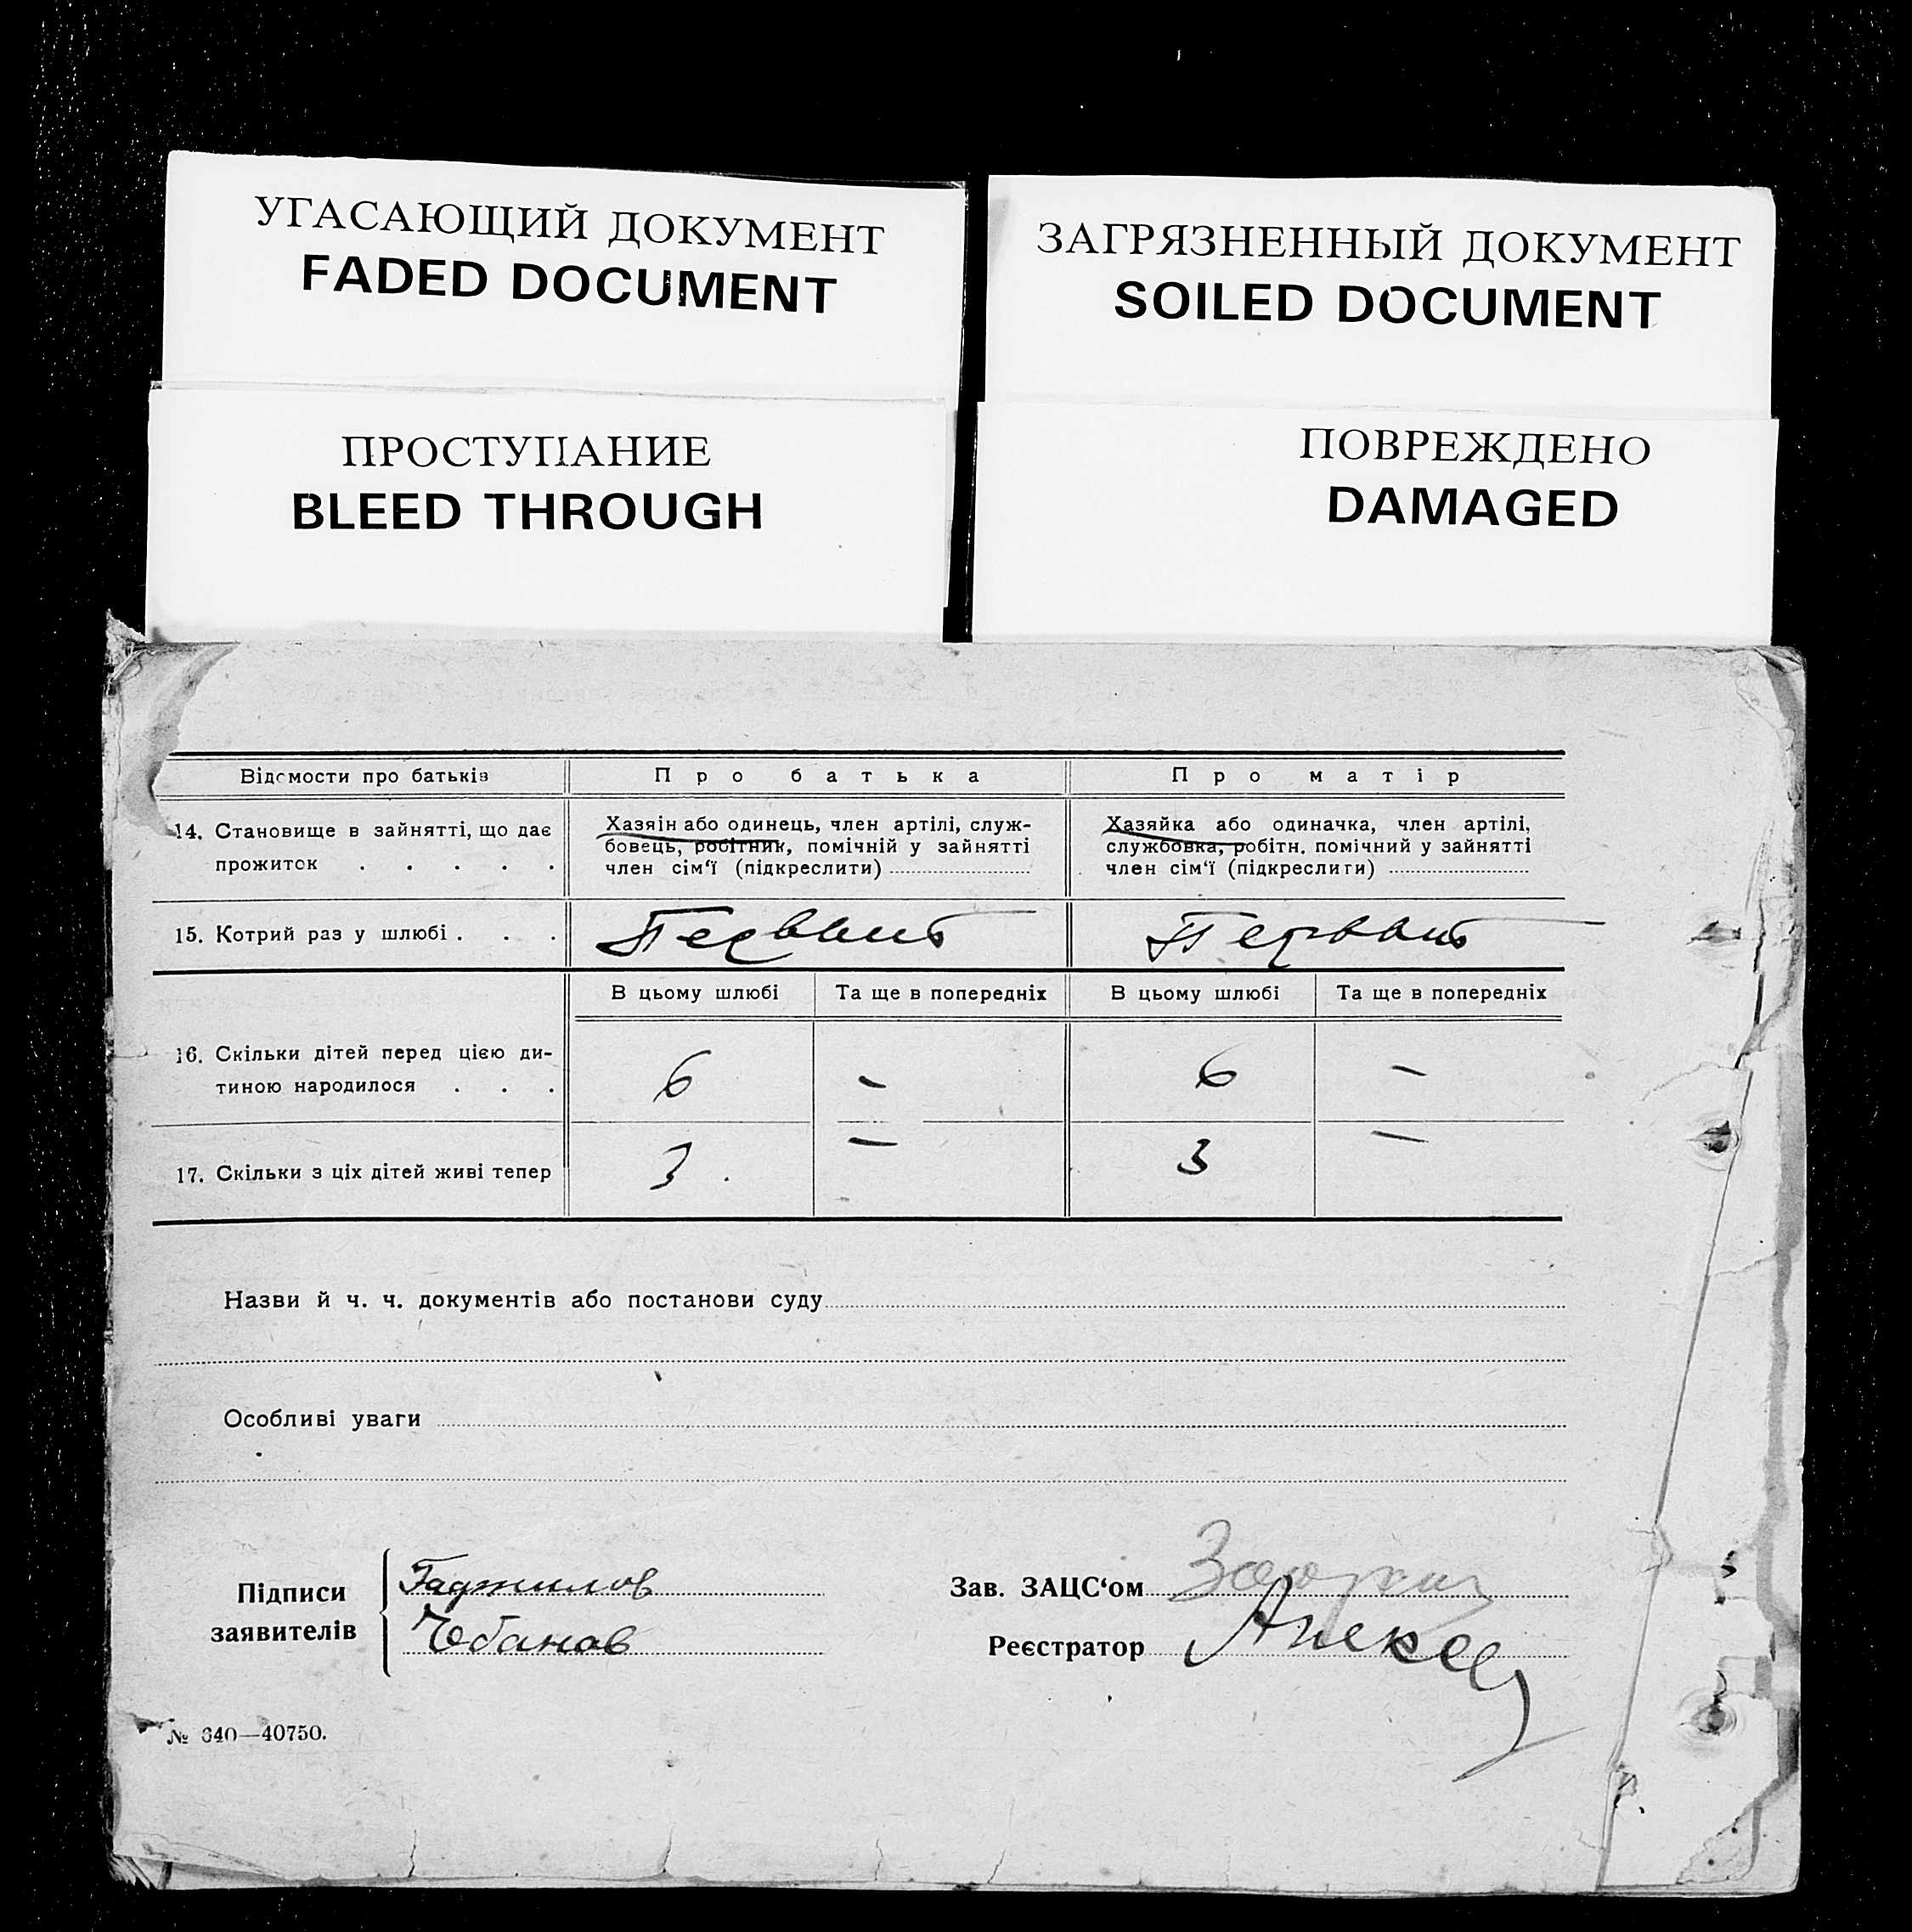 УГАСАЮЩИЙ ДОКУМЕНТ
FADED DOCUMENT
ЗАГРЯЗНЕННЫЙ ДОКУМЕНТ
SOILED DOCUMENT
ПРОСТУПАНИЕ
BLEED THROUGH
ПОВРЕЖДЕНО
DAMAGED
Відомости про батьків Про батька Про матір
14. Становище в зайнятті, що дає
прожиток . . . . .
Хазяін або одинець, член артілі, служ-
бовець, робітник, помічній у зайнятті
член сім‘ї (підкреслити)
Хазяйка або одиначка, член артілі,
службовка, робітн. помічний у зайнятті
член сім‘ї (підкреслити)
15. Котрий раз у шлюбі . . . Первый Первый
В цьому шлюбі Та ще в попередніх В цьому шлюбі Та ще в попередніх
16. Скільки дітей перед цією ди-
тиною народилося . . . 6 – 6 –
17. Скільки з ціх дітей живі тепер 3 – 3 –
Назви й ч. ч. документів або постанови суду
Особливі уваги
Підписи
заявителів
Гаджилов
Чебанов
Зав. ЗАЦС‘ом
Реєстратор
№ 640—40750.